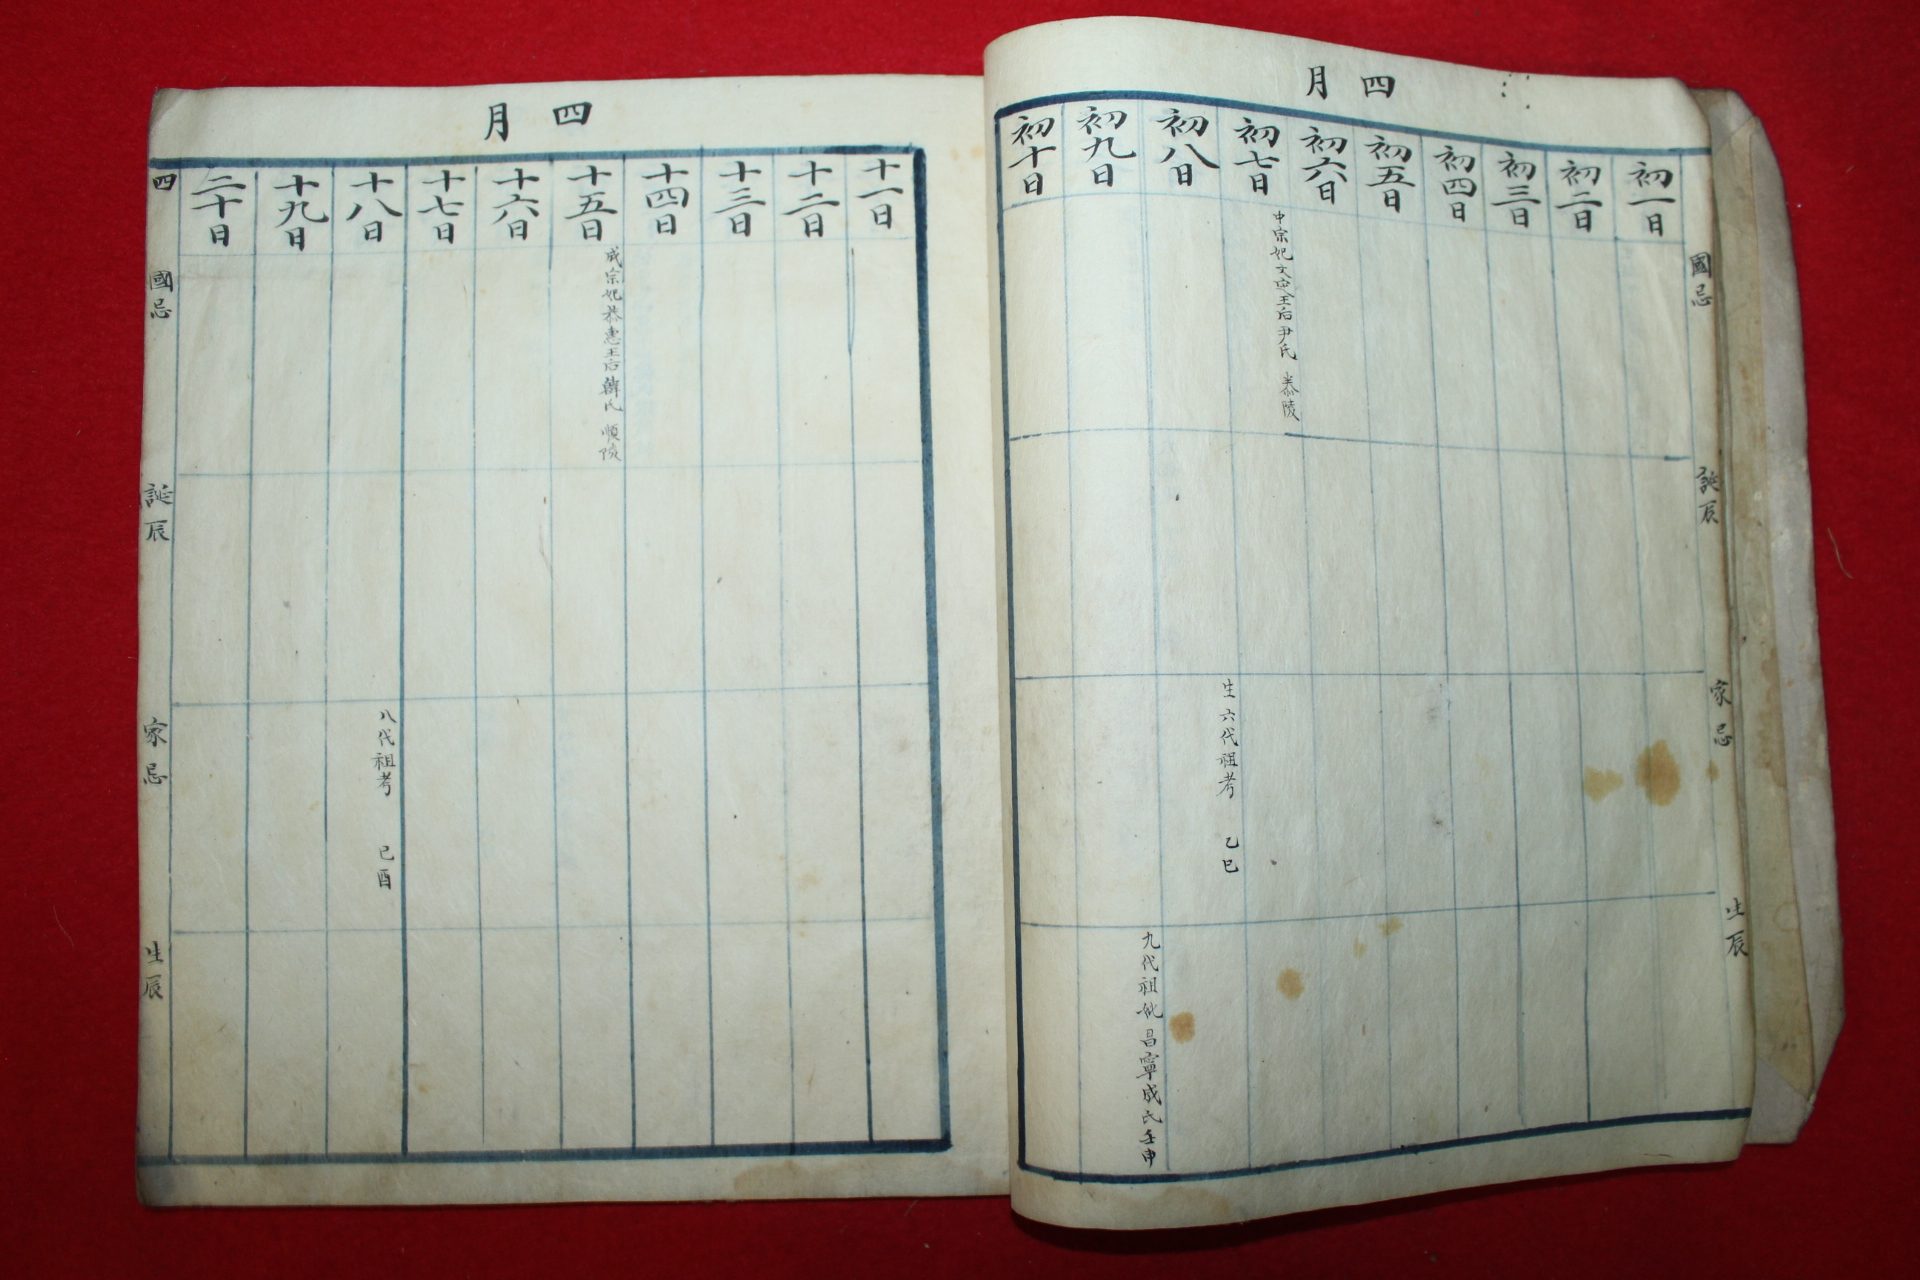 四月
初一日
初二日
初三日
初四日
初五日
初六日
初七日
初八日
初九日
初十日
國忌
誕辰
家忌
生辰
中宗妃文定王后尹氏 泰陵
生六代祖考 乙巳
九代祖妣昌寧成氏壬申
四月
十一日
十二日
十三日
十四日
十五日
十六日
十七日
十八日
十九日
二十日
成宗妃恭惠王后韓氏 順陵
八代祖考 己酉
四
國忌
誕辰
家忌
生辰